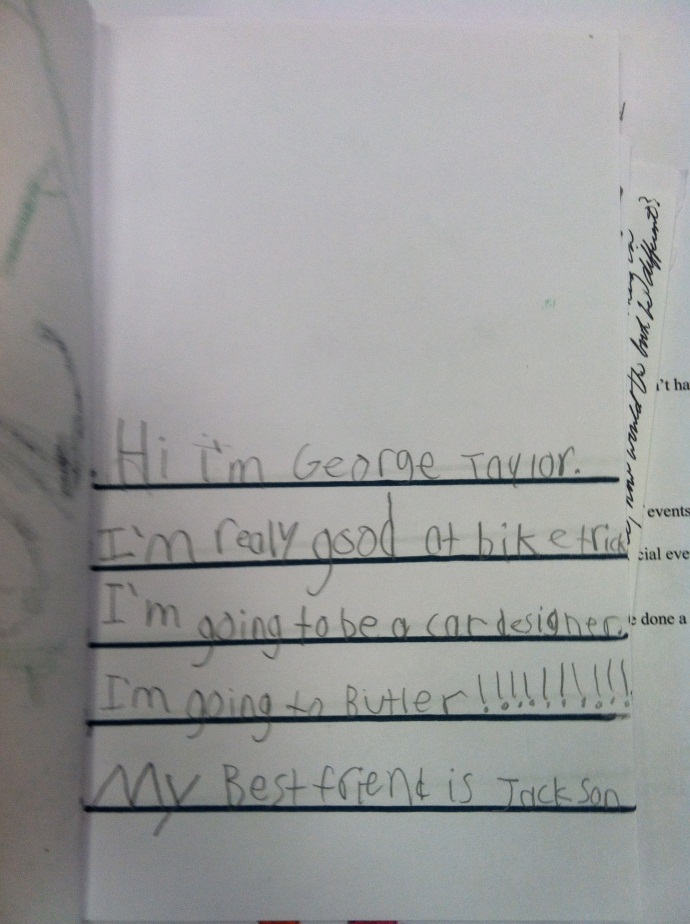 Hi i'm George Taylor.
I'm realy good at bike trick
I'm going to be a car designer.
I'm going to Butler!!!!!!!!!!
My Best friend is Jackson
how would the book be different?
't ha
events
cial eve
done a